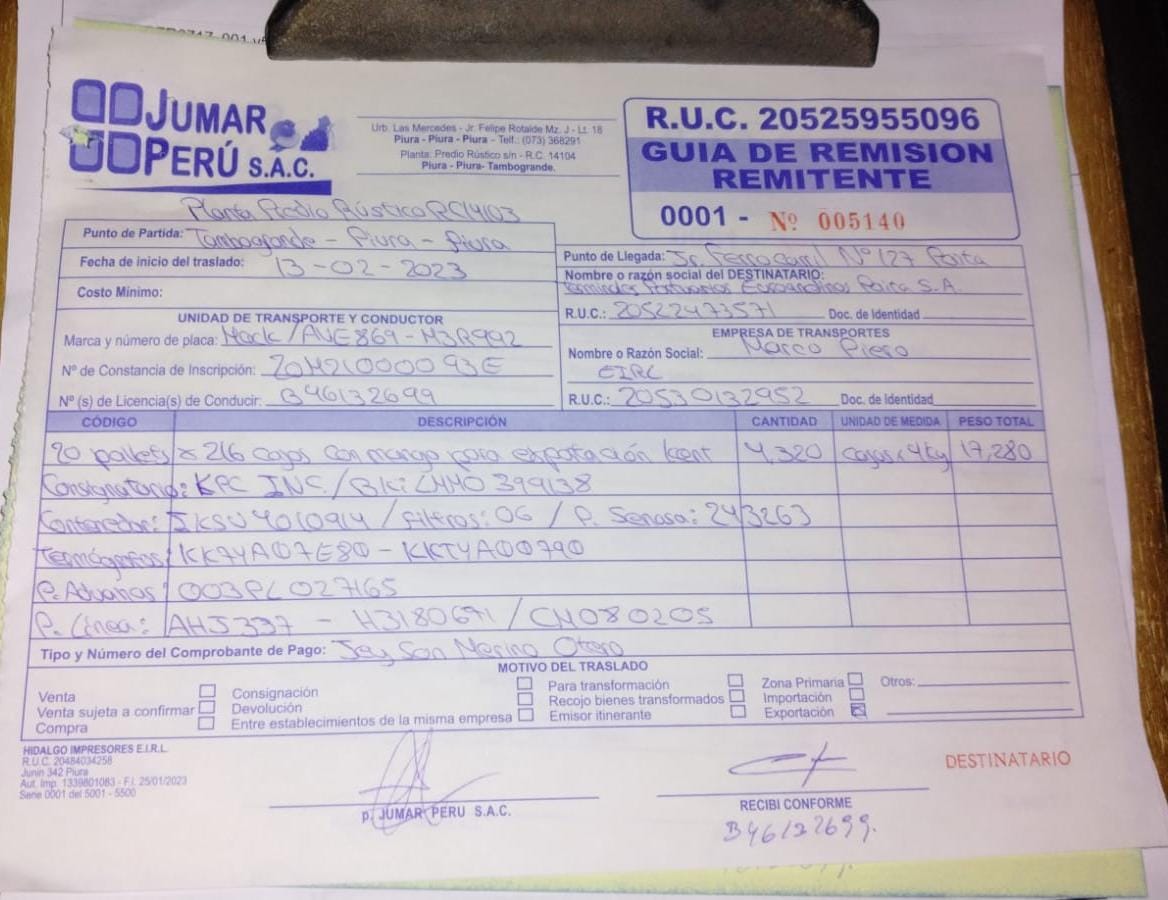 JUMAR
PERÚ S.A.C.
Urb. Las Mercedes - Jr. Felipe Rotalde Mz. J - Lt. 18
Piura - Piura - Piura - Telf.: (073) 368291
Planta: Predio Rústico s/n - R.C. 14104
Piura - Piura- Tambogrande.
R.U.C. 20525955096
GUIA DE REMISION
REMITENTE
0001 - Nº 005140
Planta Predio Rústico RC14103
Punto de Partida: Tambogrande - Piura - Piura
Fecha de inicio del traslado: 13-02-2023
Costo Mínimo:
Punto de Llegada: Jr. Ferrocarril Nº 127 Paita
Nombre o razón social del DESTINATARIO:
Terminales Portuarios Euroandinos Paita S.A.
R.U.C.: 20522473571 Doc. de Identidad
UNIDAD DE TRANSPORTE Y CONDUCTOR
Marca y número de placa: Mack / AVE869 - M3R992
Nº de Constancia de Inscripción: 20M21000093E
Nº (s) de Licencia(s) de Conducir: B46132699
EMPRESA DE TRANSPORTES
Nombre o Razón Social: Marco Piero
EIRL
R.U.C.: 20530132952 Doc. de Identidad
CÓDIGO DESCRIPCIÓN CANTIDAD UNIDAD DE MEDIDA PESO TOTAL
20 pallets x 216 cajas con mango para exportación kent 4,320 cajas x 4kg 17,280
Consignatario: KPC INC. / BK: LMMO 399138
Contenedor: IKSU 4010914 / filtros: 06 / P. Senasa: 243263
Termógrafos: KK74A07E80 - KKTYA00790
P. Aduanas: 003PL027165
P. Línea: AHJ337 - H3180671 / CM080205
Tipo y Número del Comprobante de Pago: Jeyson Merino Otero
MOTIVO DEL TRASLADO
Venta
Venta sujeta a confirmar
Compra
Consignación
Devolución
Entre establecimientos de la misma empresa
Para transformación
Recojo bienes transformados
Emisor itinerante
Zona Primaria
Importación
Exportación
Otros:
HIDALGO IMPRESORES E.I.R.L.
R.U.C. 20484034258
Junin 342 Piura
Aut. Imp. 1339801083 - F.I. 25/01/2023
Serie 0001 del 5001 - 5500
p. JUMAR PERU S.A.C.
RECIBI CONFORME
B46122699.
DESTINATARIO